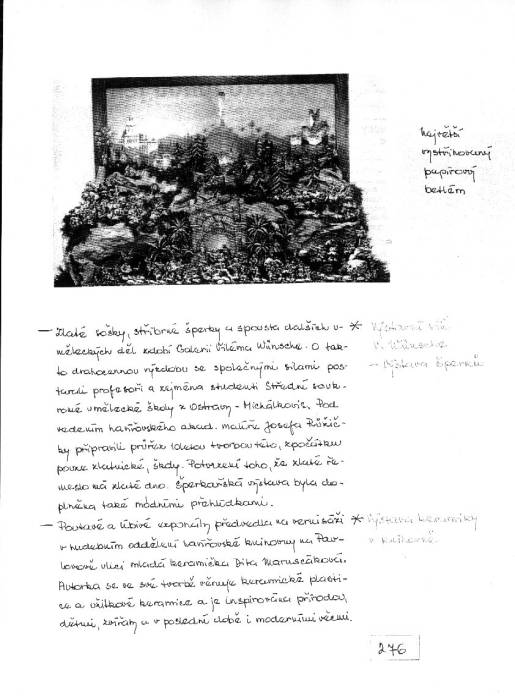 Největší
vystřihovaný
papírový
betlém
— Zlaté sošky, stříbrné šperky a spousta dalších u-
měleckých děl zdobí Galerii Viléma Wünsche. O tak-
to drahocennou výzdobu se společnými silami pos-
tarali profesoři a zejména studenti Střední souk-
romé umělecké školy z Ostravy - Michálkovic. Pod
vedením havířovského akad. malíře Josefa Růžič-
ky připravili průřez 10letou tvorbou této, zpočátku
pouze zlatnické, školy. Potvrzení toho, že zlaté ře-
meslo má zlaté dno. Šperkařská výstava byla do-
plněna také módními přehlídkami.
* Výstavní síň
V. Wünsche
- výstava šperků
— Poutavé a líbivé exponáty předvedla na vernisáži
v hudebním oddělení havířovské knihovny na Pav-
lovově ulici mladá keramička Dita Maruščáková.
Autorka se ve své tvorbě věnuje keramické plasti-
ce a užitkové keramice a je inspirována přírodou,
dětmi, zvířaty a v poslední době i moderními věcmi.
* Výstava keramiky
v knihovně
276